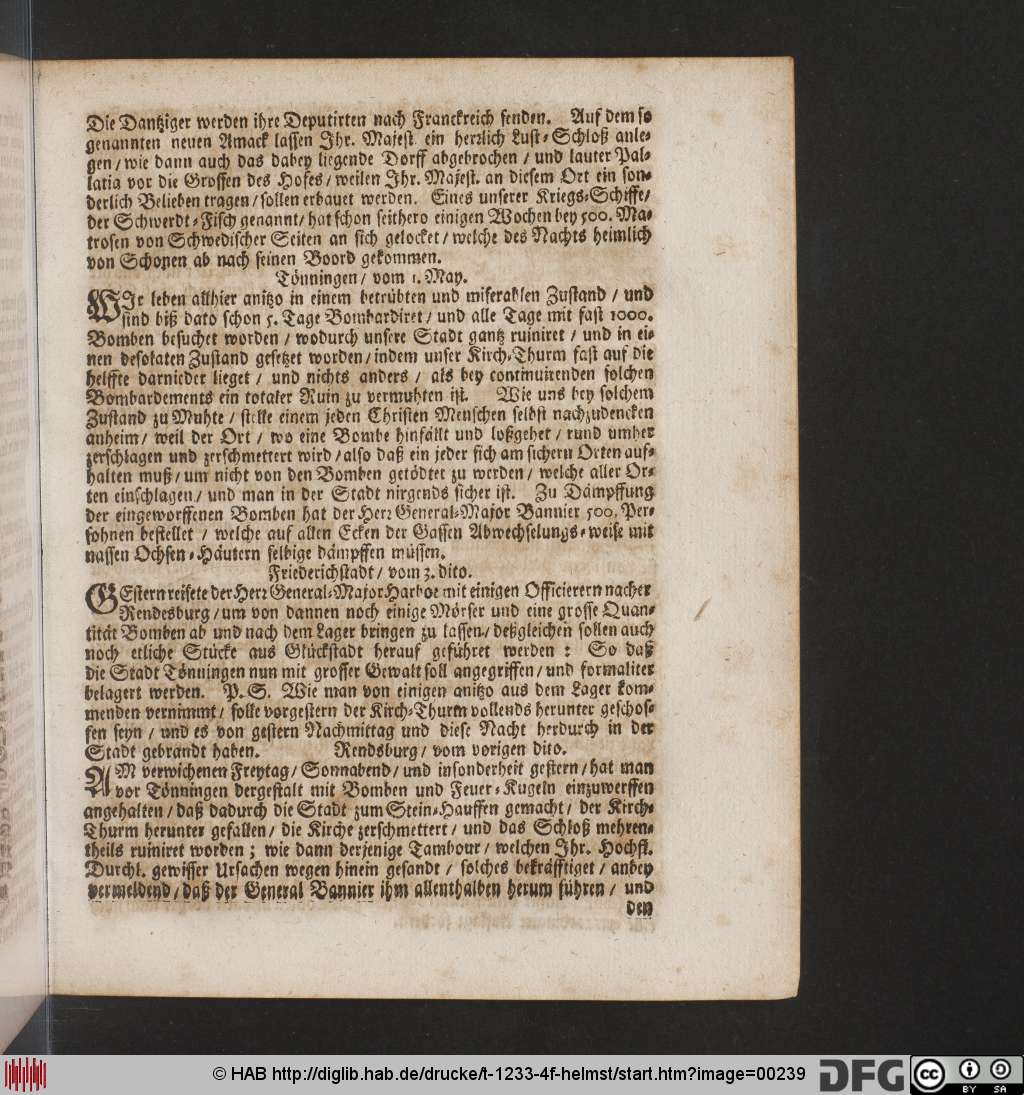 Die Dantziger werden ihre Deputirten nach Franckreich senden. Auf dem so
genannten neuen Amack lassen Ihr. Majest. ein herzlich Lust-Schloß anle-
gen / wie dann auch das dabey liegende Dorff abgebrochen / und lauter Pal-
latia vor die Grossen des Hofes / weilen Ihr. Majest. an diesem Ort ein son-
derlich Belieben tragen / sollen erbauet werden. Eines unserer Kriegs-Schiffe /
der Schwerdt-Fisch genannt / hat schon seithero einigen Wochen bey 500. Ma-
trosen von Schwedischer Seiten an sich gelocket / welche des Nachts heimlich
von Schonen ab nach seinen Boord gekommen.
Tönningen / vom 1. May.
WIr leben allhier anitzo in einem betrübten und miserablen Zustand / und
sind biß dato schon 5. Tage Bombardiret / und alle Tage mit fast 1000.
Bomben besuchet worden / wodurch unsere Stadt gantz ruiniret / und in ei-
nen desolaten Zustand gesetzet worden / indem unser Kirch-Thurm fast auf die
helffte darnieder lieget / und nichts anders / als bey continuirenden solchen
Bombardements ein totaler Ruin zu vermuhten ist. Wie uns bey solchem
Zustand zu Muhte / stelle einem jeden Christen Menschen selbst nachzudencken
anheim / weil der Ort / wo eine Bombe hinfällt und loßgehet / rund umher
zerschlagen und zerschmettert wird / also daß ein jeder sich am sichern Orten auf-
halten muß / um nicht von den Bomben getödtet zu werden / welche aller Or-
ten einschlagen / und man in der Stadt nirgends sicher ist. Zu Dämpffung
der eingeworffenen Bomben hat der Herr General-Major Bannier 500. Per-
sohnen bestellet / welche auf allen Ecken der Gassen Abwechselungs-weise mit
nassen Ochsen-Häutern selbige dämpffen müssen.
Friederichstadt / vom 3. dito.
GEstern reisete der Herr General-Major Harboe mit einigen Officierern nacher
Rendesburg / um von dannen noch einige Mörser und eine grosse Quan-
tität Bomben ab und nach dem Lager bringen zu lassen / deßgleichen sollen auch
noch etliche Stücke aus Glückstadt herauf geführet werden : So daß
die Stadt Tönningen nun mit grosser Gewalt soll angegriffen / und formaliter
belagert werden. P. S. Wie man von einigen anitzo aus dem Lager kom-
menden vernimmt / solle vorgestern der Kirch-Thurm vollends herunter geschos-
sen seyn / und es von gestern Nachmittag und diese Nacht herdurch in der
Stadt gebrandt haben. Rendsburg / vom vorigen dito.
AM verwichenen Freytag / Sonnabend / und insonderheit gestern / hat man
vor Tönningen dergestalt mit Bomben und Feuer-Kugeln einzuwerffen
angehalten / daß dadurch die Stadt zum Stein-Hauffen gemacht / der Kirch-
Thurm herunter gefallen / die Kirche zerschmettert / und das Schloß mehren-
theils ruiniret worden ; wie dann derjenige Tambour / welchen Ihr. Hochfl.
Durchl. gewisser Ursachen wegen hinein gesandt / solches bekräfftiget / anbey
vermeldend / daß der General Bannier ihm allenthalben herum führen / und
den
© HAB http://diglib.hab.de/drucke/t-1233-4f-helmst/start.htm?image=00239
DFG
cc BY SA